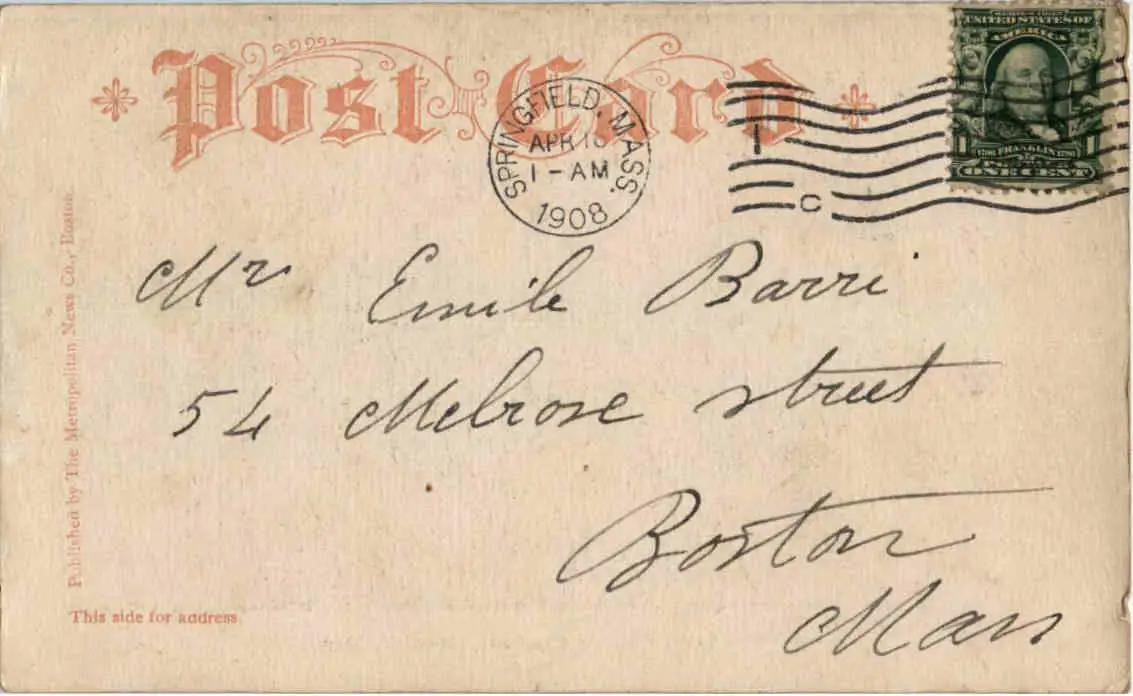 Post Card
UNITED STATES OF
AMERICA
SPRINGFIELD, MASS.
APR
1 - AM
1908
1
C
1 FRANKLIN 1
ONE CENT
Mr Emile Barri
54 Melrose street
Boston
Mass
Published by The Metropolitan News Co., Boston.
This side for address